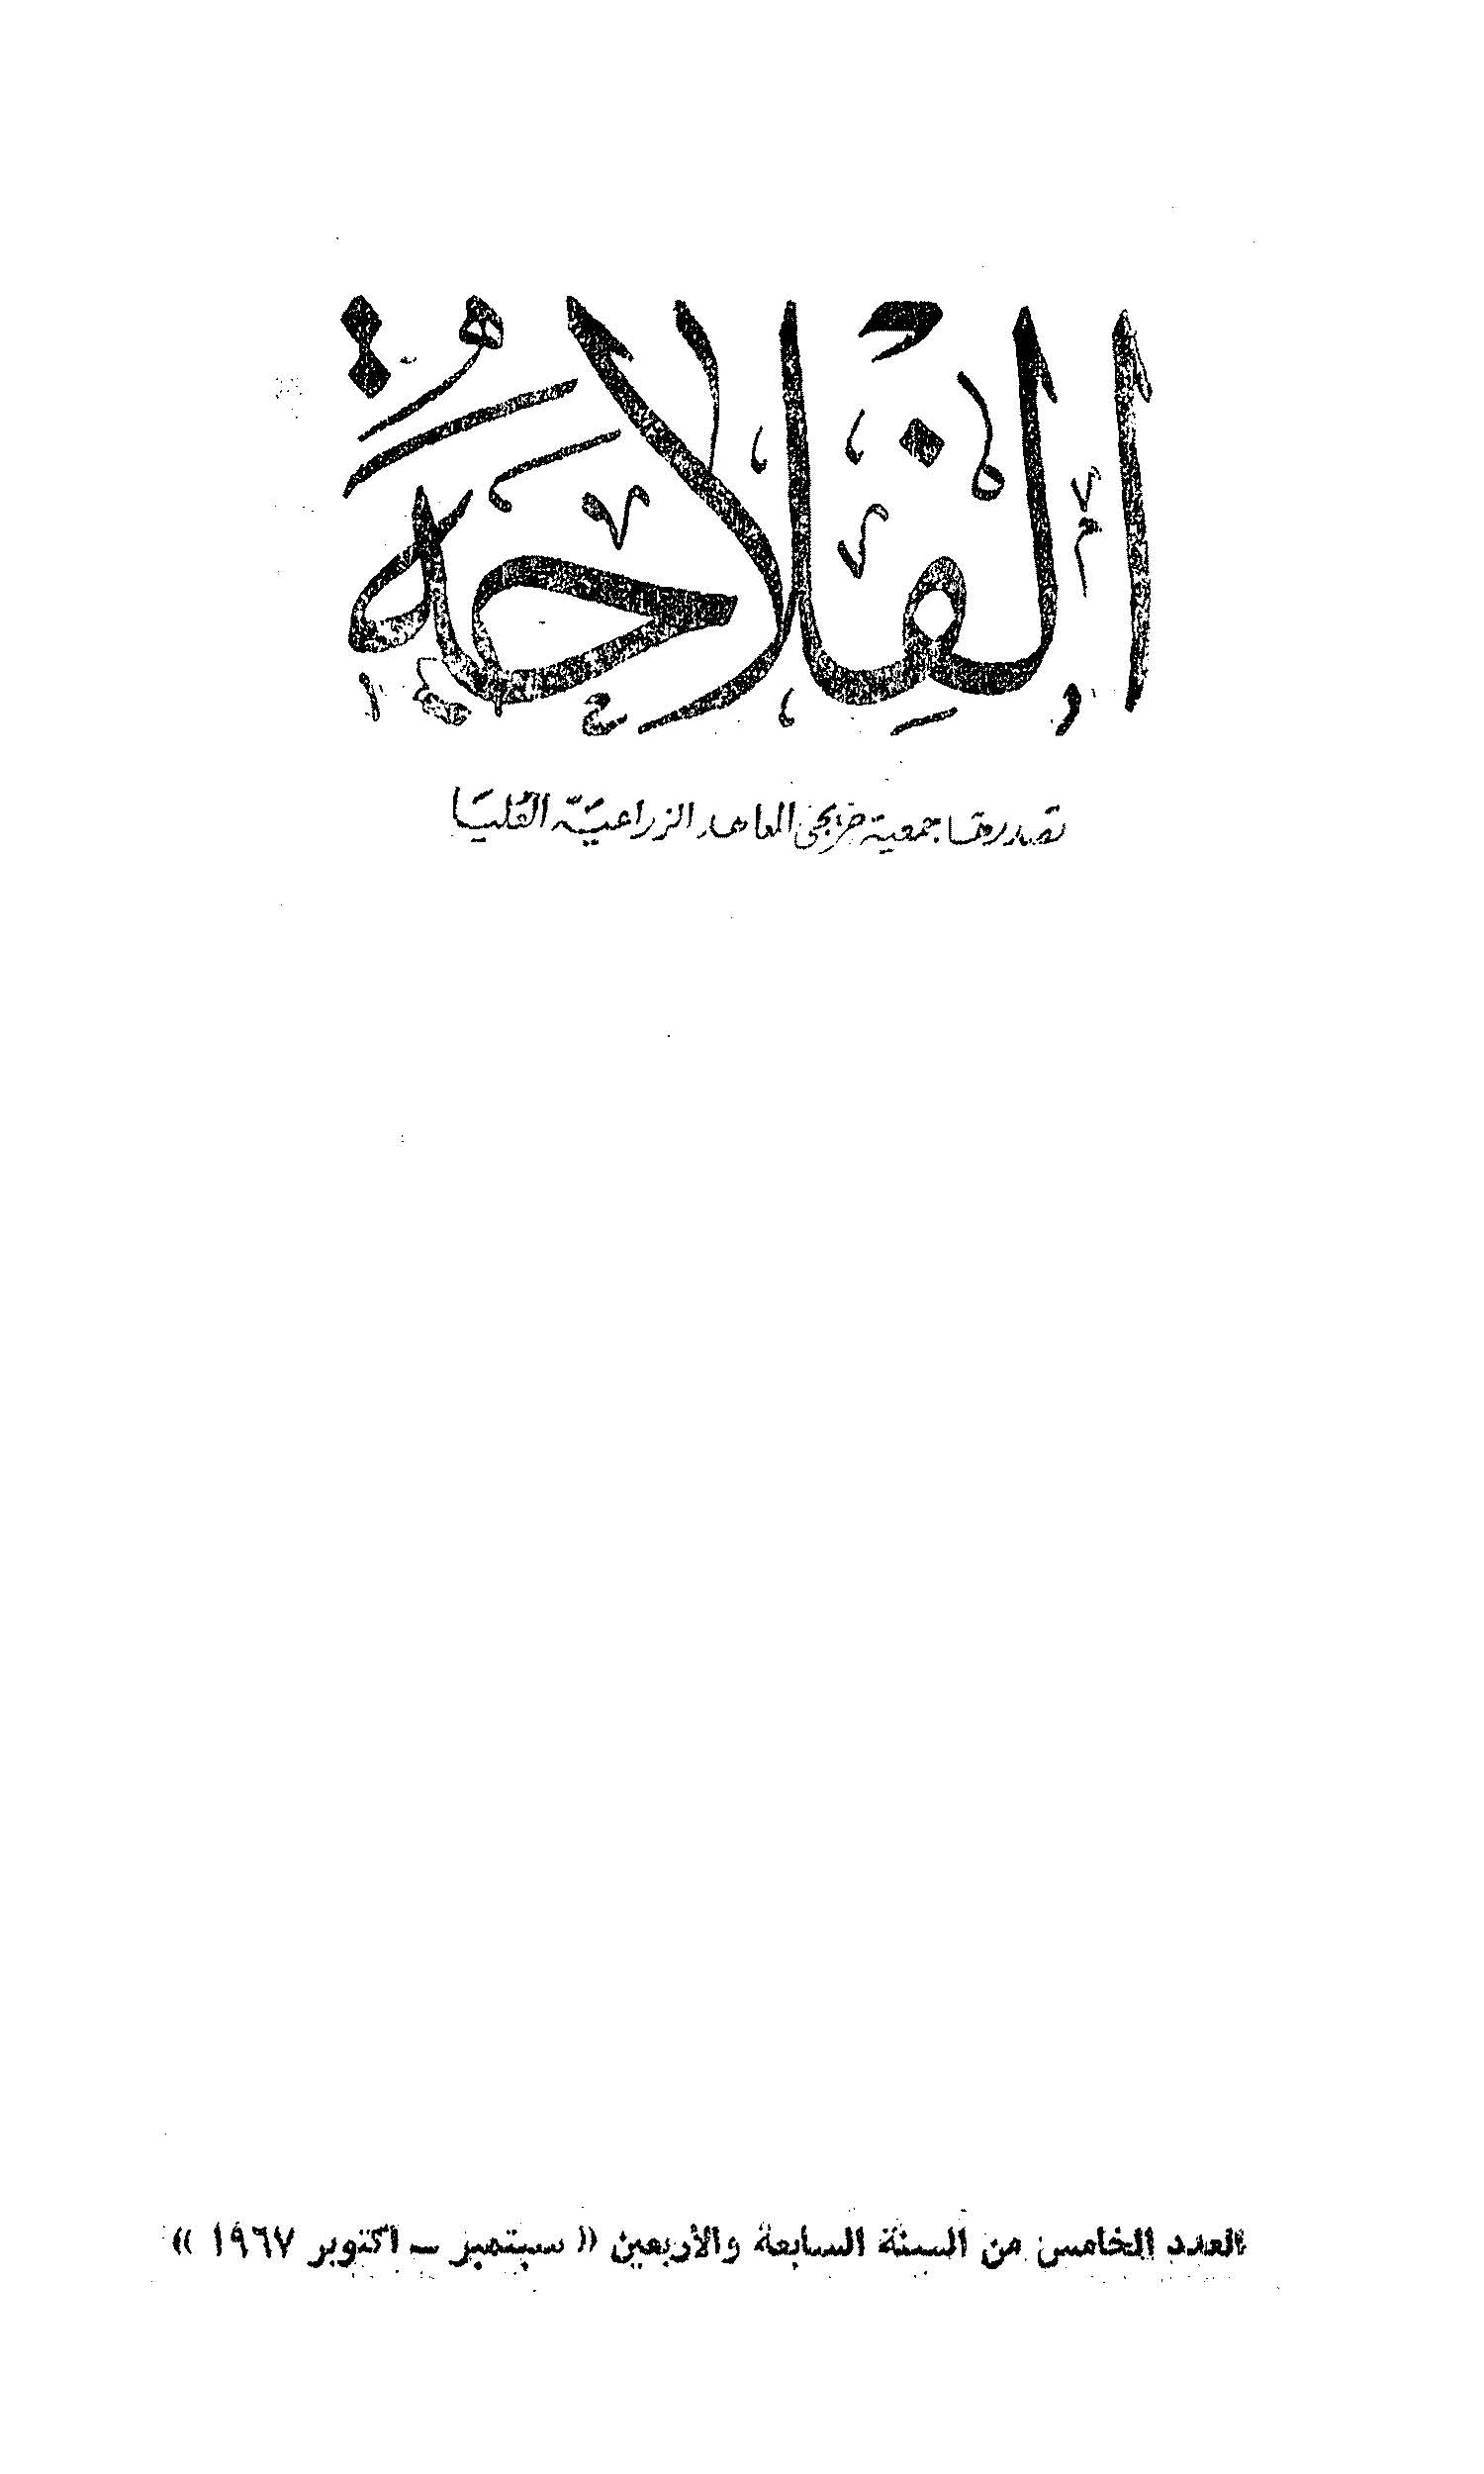 الفلاحة
تصدرها جمعية خريجى المعاهد الزراعية العليا
العدد الخامس من السنة السابعة والأربعين « سبتمبر ــ اكتوبر ١٩٦٧ »